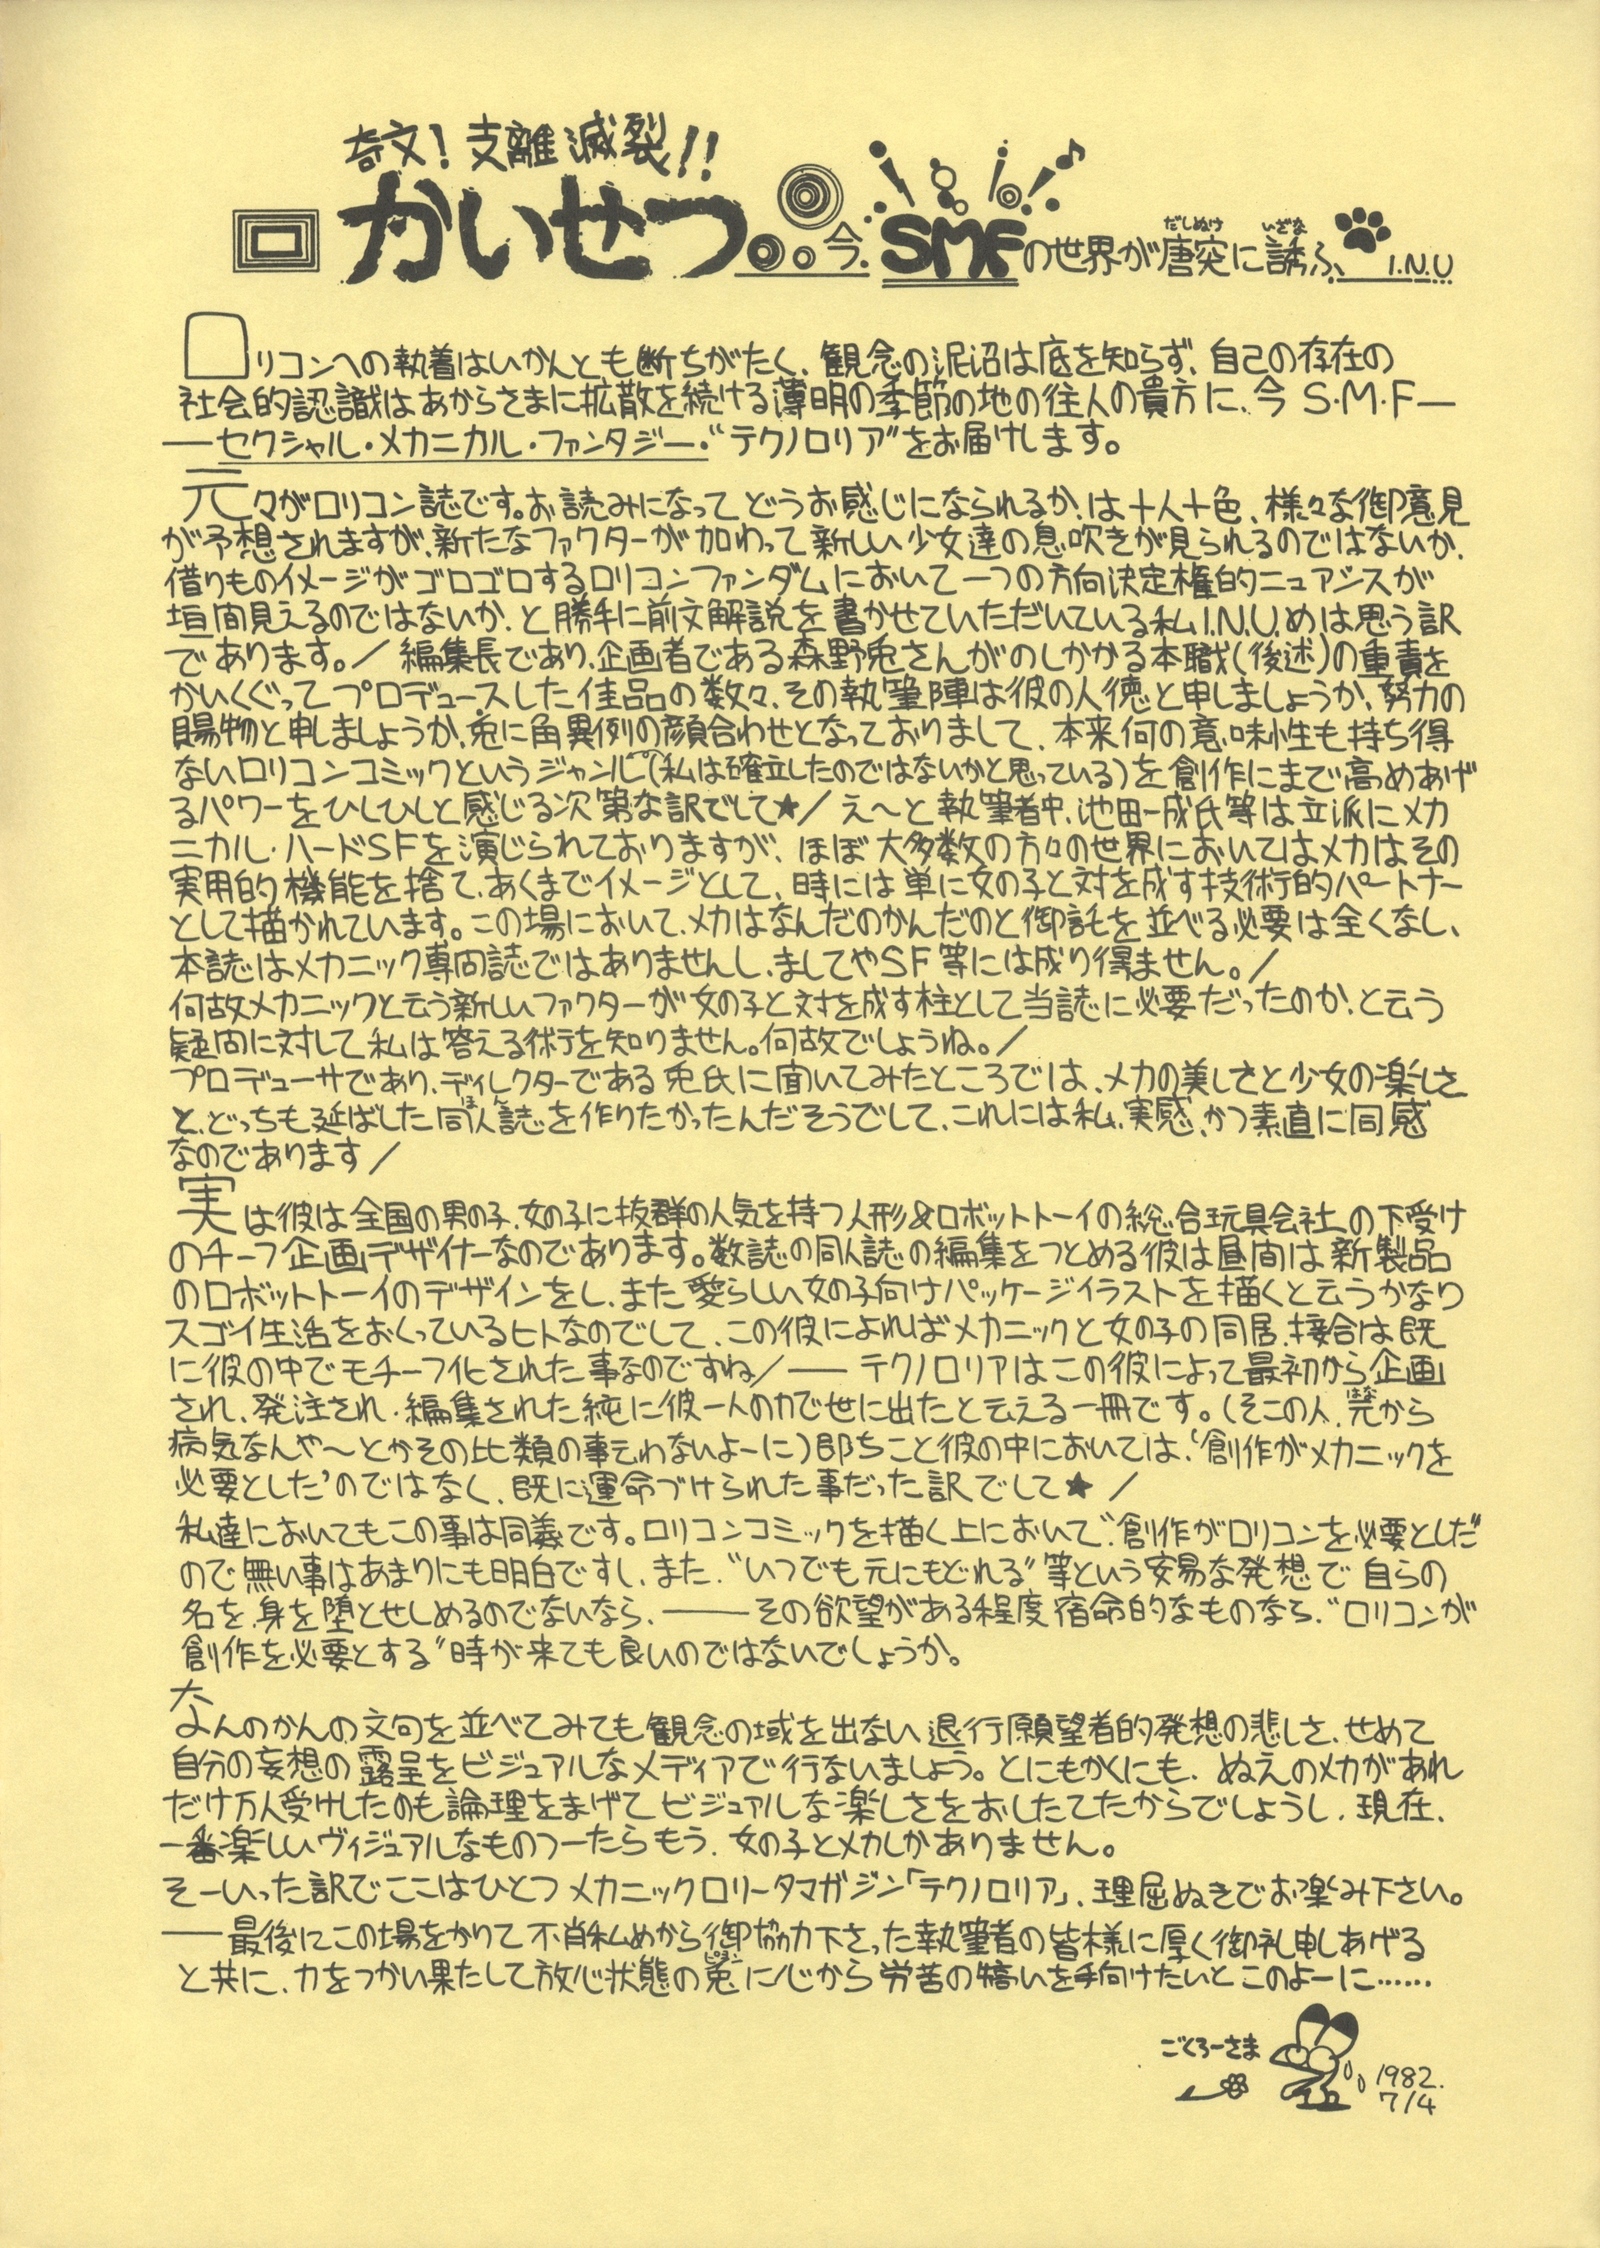 奇文!支離滅裂!!
かいせつ。。今.SMFの世界が唐突に誘ふ、 I.N.U
だしぬけ いざな
ロリコンへの執着はいかんとも断ちがたく、観念の泥沼は底を知らず、自己の存在の
社会的認識はあからさまに拡散を続ける薄明の季節の地の住人の貴方に、今 S・M・F―
―セクシャル・メカニカル・ファンタジー・“テクノロリア”をお届けします。
元々がロリコン誌です。お読みになってどうお感じになられるか、は十人十色、様々な御意見
が予想されますが、新たなファクターが加わって新しい少女達の息吹きが見られるのではないか、
借りものイメージがゴロゴロするロリコンファンダムにおいて一つの方向決定権的ニュアンスが
垣間見えるのではないか、と勝手に前文解説を書かせていただいている私I.N.U.めは思う訳
であります。/ 編集長であり、企画者である森野兎さんがのしかかる本職(後述)の重責を
かいくぐってプロデュースした佳品の数々、その執筆陣は彼の人徳と申しましょうか、努力の
賜物と申しましょうか、兎に角異例の顔合わせとなっておりまして、本来何の意味性も持ち得
ないロリコンコミックというジャンル(私は確立したのではないかと思っている)を創作にまで高めあげ
るパワーをひしひしと感じる次第な訳でして★/ え〜と執筆者中、池田一成氏等は立派にメカ
ニカル・ハードSFを演じられておりますが、ほぼ大多数の方々の世界においてはメカはその
実用的機能を捨て、あくまでイメージとして、時には単に女の子と対を成す技術的パートナー
として描かれています。この場において、メカはなんだのかんだのと御託を並べる必要は全くなし、
本誌はメカニック専門誌ではありませんし、ましてやSF等には成り得ません。/
何故メカニックと云う新しいファクターが女の子と対を成す柱として当誌に必要だったのか、と云う
疑問に対して私は答える術を知りません。何故でしょうね。/
プロデューサであり、ディレクターである兎氏に聞いてみたところでは、メカの美しさと少女の楽しさ
と、どっちも延ばした同人誌を作りたかったんだそうでして、これには私、実感、かつ素直に同感
ほん
なのであります/
実は彼は全国の男の子、女の子に抜群の人気を持つ人形&ロボットトーイの総合玩具会社の下受け
のチーフ企画デザイナーなのであります。数誌の同人誌の編集をつとめる彼は昼間は新製品
のロボットトーイのデザインをし、また愛らしい女の子向けパッケージイラストを描くと云うかなり
スゴイ生活をおくっているヒトなのでして、この彼によればメカニックと女の子の同居、接合は既
に彼の中でモチーフ化された事なのですね/―― テクノロリアはこの彼によって最初から企画
され、発注され、編集された純に彼一人の力で世に出たと云える一冊です。(そこの人、完から
はな
病気なんや〜とかその比類の事云わないよーに)即ちこと彼の中においては、‘創作がメカニックを
必要とした’のではなく、既に運命づけられた事だった訳でして★ /
私達においてもこの事は同義です。ロリコンコミックを描く上において“創作がロリコンを必要とした”
ので無い事はあまりにも明白ですし、また、“いつでも元にもどれる”等という安易な発想で自らの
名を、身を堕とせしめるのでないなら、――その欲望がある程度宿命的なものなら、“ロリコンが
創作を必要とする”時が来ても良いのではないでしょうか。
なんのかんの文句を並べてみても観念の域を出ない退行願望者的発想の悲しさ、せめて
自分の妄想の露呈をビジュアルなメディアで行ないましょう。とにもかくにも、ぬえのメカがあれ
だけ万人受けしたのも論理をまげてビジュアルな楽しさをおしたてたからでしょうし、現在、
一番楽しいヴィジュアルなものつーたらもう、女の子とメカしかありません。
そーいった訳でここはひとつメカニックロリータマガジン「テクノロリア」、理屈ぬきでお楽み下さい。
――最後にこの場をかりて不肖私めから御協力下さった執筆者の皆様に厚く御礼申しあげる
と共に、力をつかい果たして放心状態の兎に心から労苦の犒いを手向けたいとこのよーに……
ピョン
ごくろーさま
1982.
7/4